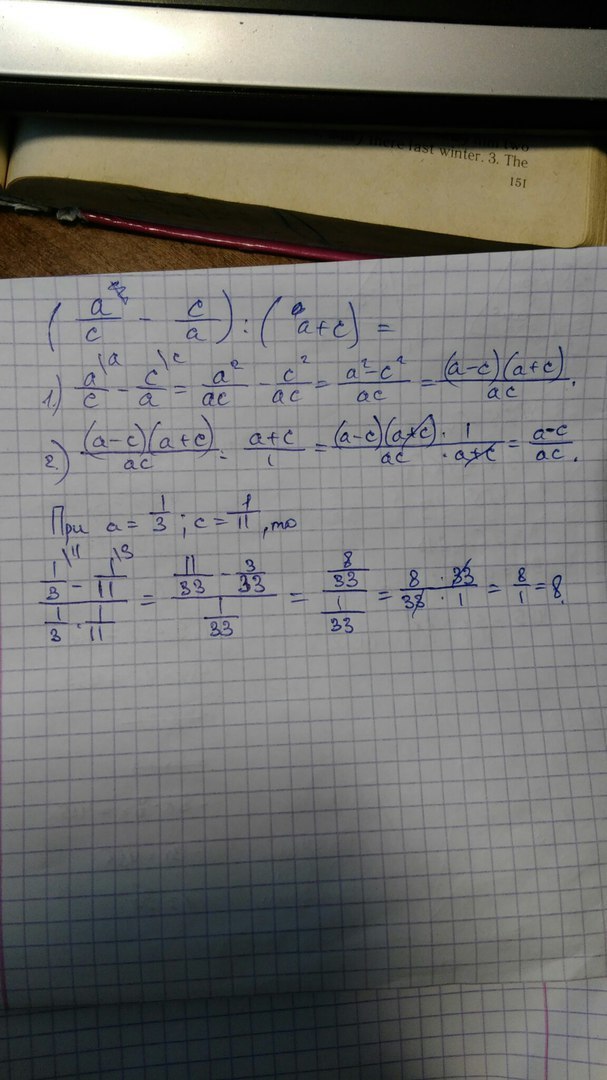 there last winter. 3. The
151
( a/c - c/a ) : ( a+c ) =
1.) a\a/c - c\c/a = a²/ac - c²/ac = a²-c²/ac = (a-c)(a+c)/ac.
2.) (a-c)(a+c)/ac : a+c/1 = (a-c)(a+c) · 1/ac · a+c = a-c/ac.
При a = 1/3 ; c = 1/11 , то
1\11/3 - 1\3/11 / 1/3 · 1/11 = 11/33 - 3/33 / 1/33 = 8/33 / 1/33 = 8 · 33/33 · 1 = 8/1 = 8.